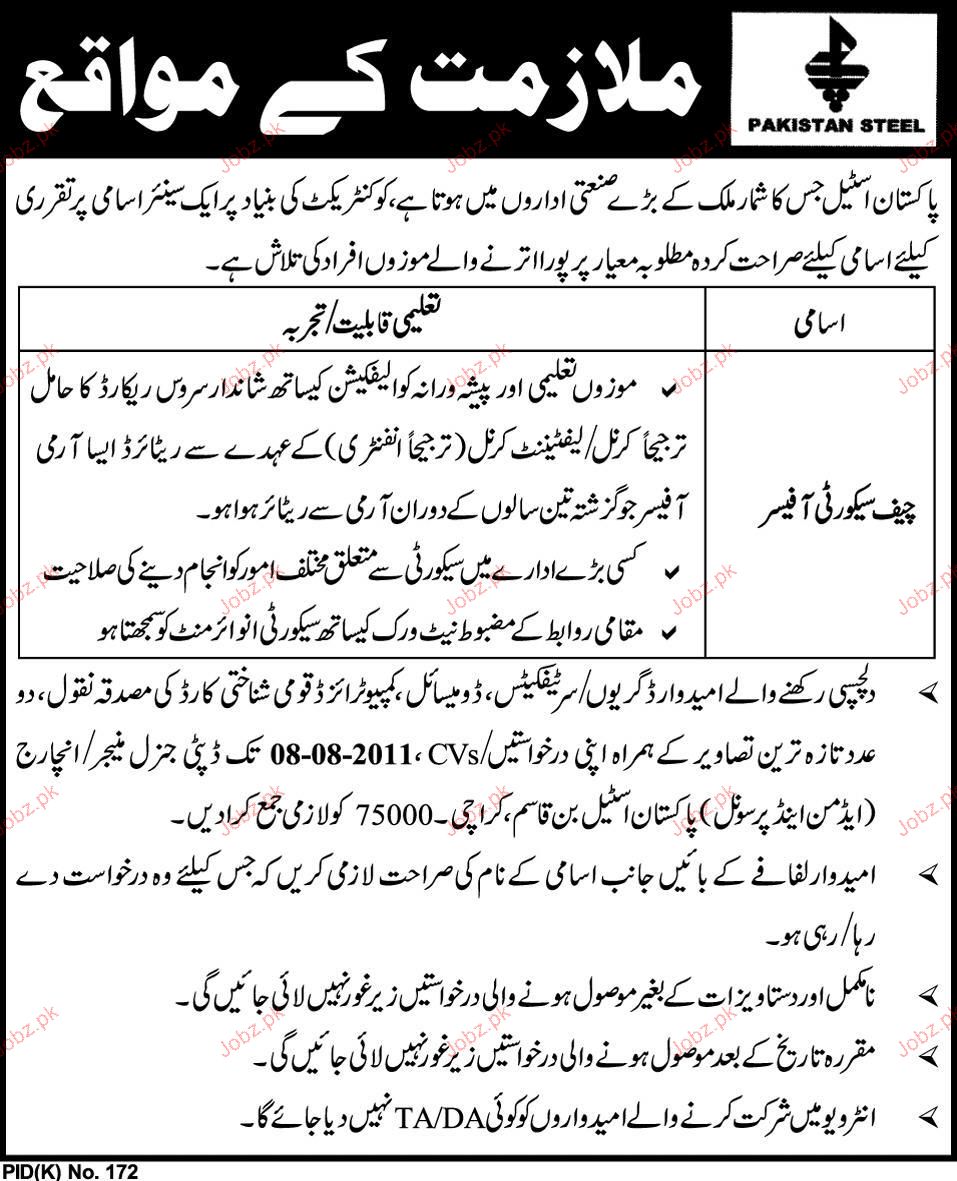 ملازمت کے مواقع
PAKISTAN STEEL
پاکستان اسٹیل جس کا شمار ملک کے بڑے صنعتی اداروں میں ہوتا ہے، کو کنٹریکٹ کی بنیاد پر ایک سینئر اسامی پر تقرری
کیلئے اسامی کیلئے صراحت کردہ مطلوبہ معیار پر پورا اترنے والے موزوں افراد کی تلاش ہے۔
اسامی
تعلیمی قابلیت/تجربہ
چیف سیکورٹی آفیسر
✓ موزوں تعلیمی اور پیشہ ورانہ کوالیفکیشن کیساتھ شاندار سروس ریکارڈ کا حامل
ترجیحاً کرنل/لیفٹیننٹ کرنل (ترجیحاً انفنٹری) کے عہدے سے ریٹائرڈ ایسا آرمی
آفیسر جو گزشتہ تین سالوں کے دوران آرمی سے ریٹائر ہوا ہو۔
✓ کسی بڑے ادارے میں سیکورٹی سے متعلق مختلف امور کو انجام دینے کی صلاحیت
✓ مقامی روابط کے مضبوط نیٹ ورک کیساتھ سیکورٹی انوائرمنٹ کو سمجھتا ہو
➢ دلچسپی رکھنے والے امیدوار ڈگریوں/سرٹیفکیٹس، ڈومیسائل، کمپیوٹرائزڈ قومی شناختی کارڈ کی مصدقہ نقول، دو
عدد تازہ ترین تصاویر کے ہمراہ اپنی درخواستیں/CVs، 08-08-2011 تک ڈپٹی جنرل منیجر/انچارج
(ایڈمن اینڈ پرسونل) پاکستان اسٹیل بن قاسم، کراچی۔75000 کو لازمی جمع کرا دیں۔
➢ امیدوار لفافے کے بائیں جانب اسامی کے نام کی صراحت لازمی کریں کہ جس کیلئے وہ درخواست دے
رہا/رہی ہو۔
➢ نامکمل اور دستاویزات کے بغیر موصول ہونے والی درخواستیں زیر غور نہیں لائی جائیں گی۔
➢ مقررہ تاریخ کے بعد موصول ہونے والی درخواستیں زیر غور نہیں لائی جائیں گی۔
➢ انٹرویو میں شرکت کرنے والے امیدواروں کو کوئی TA/DA نہیں دیا جائے گا۔
PID(K) No. 172
Jobz.pk